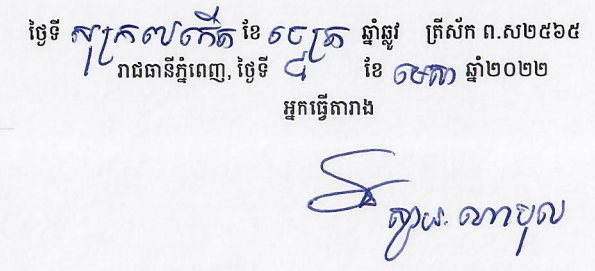 ថ្ងៃទី សុក្រ ៧កើត ខែ ចេត្រ ឆ្នាំឆ្លូវ ត្រីស័ក ព.ស២៥៦៥
រាជធានីភ្នំពេញ, ថ្ងៃទី ៨ ខែ មេសា ឆ្នាំ២០២២
អ្នកធ្វើតារាង
ស្វាយ ណាបុល